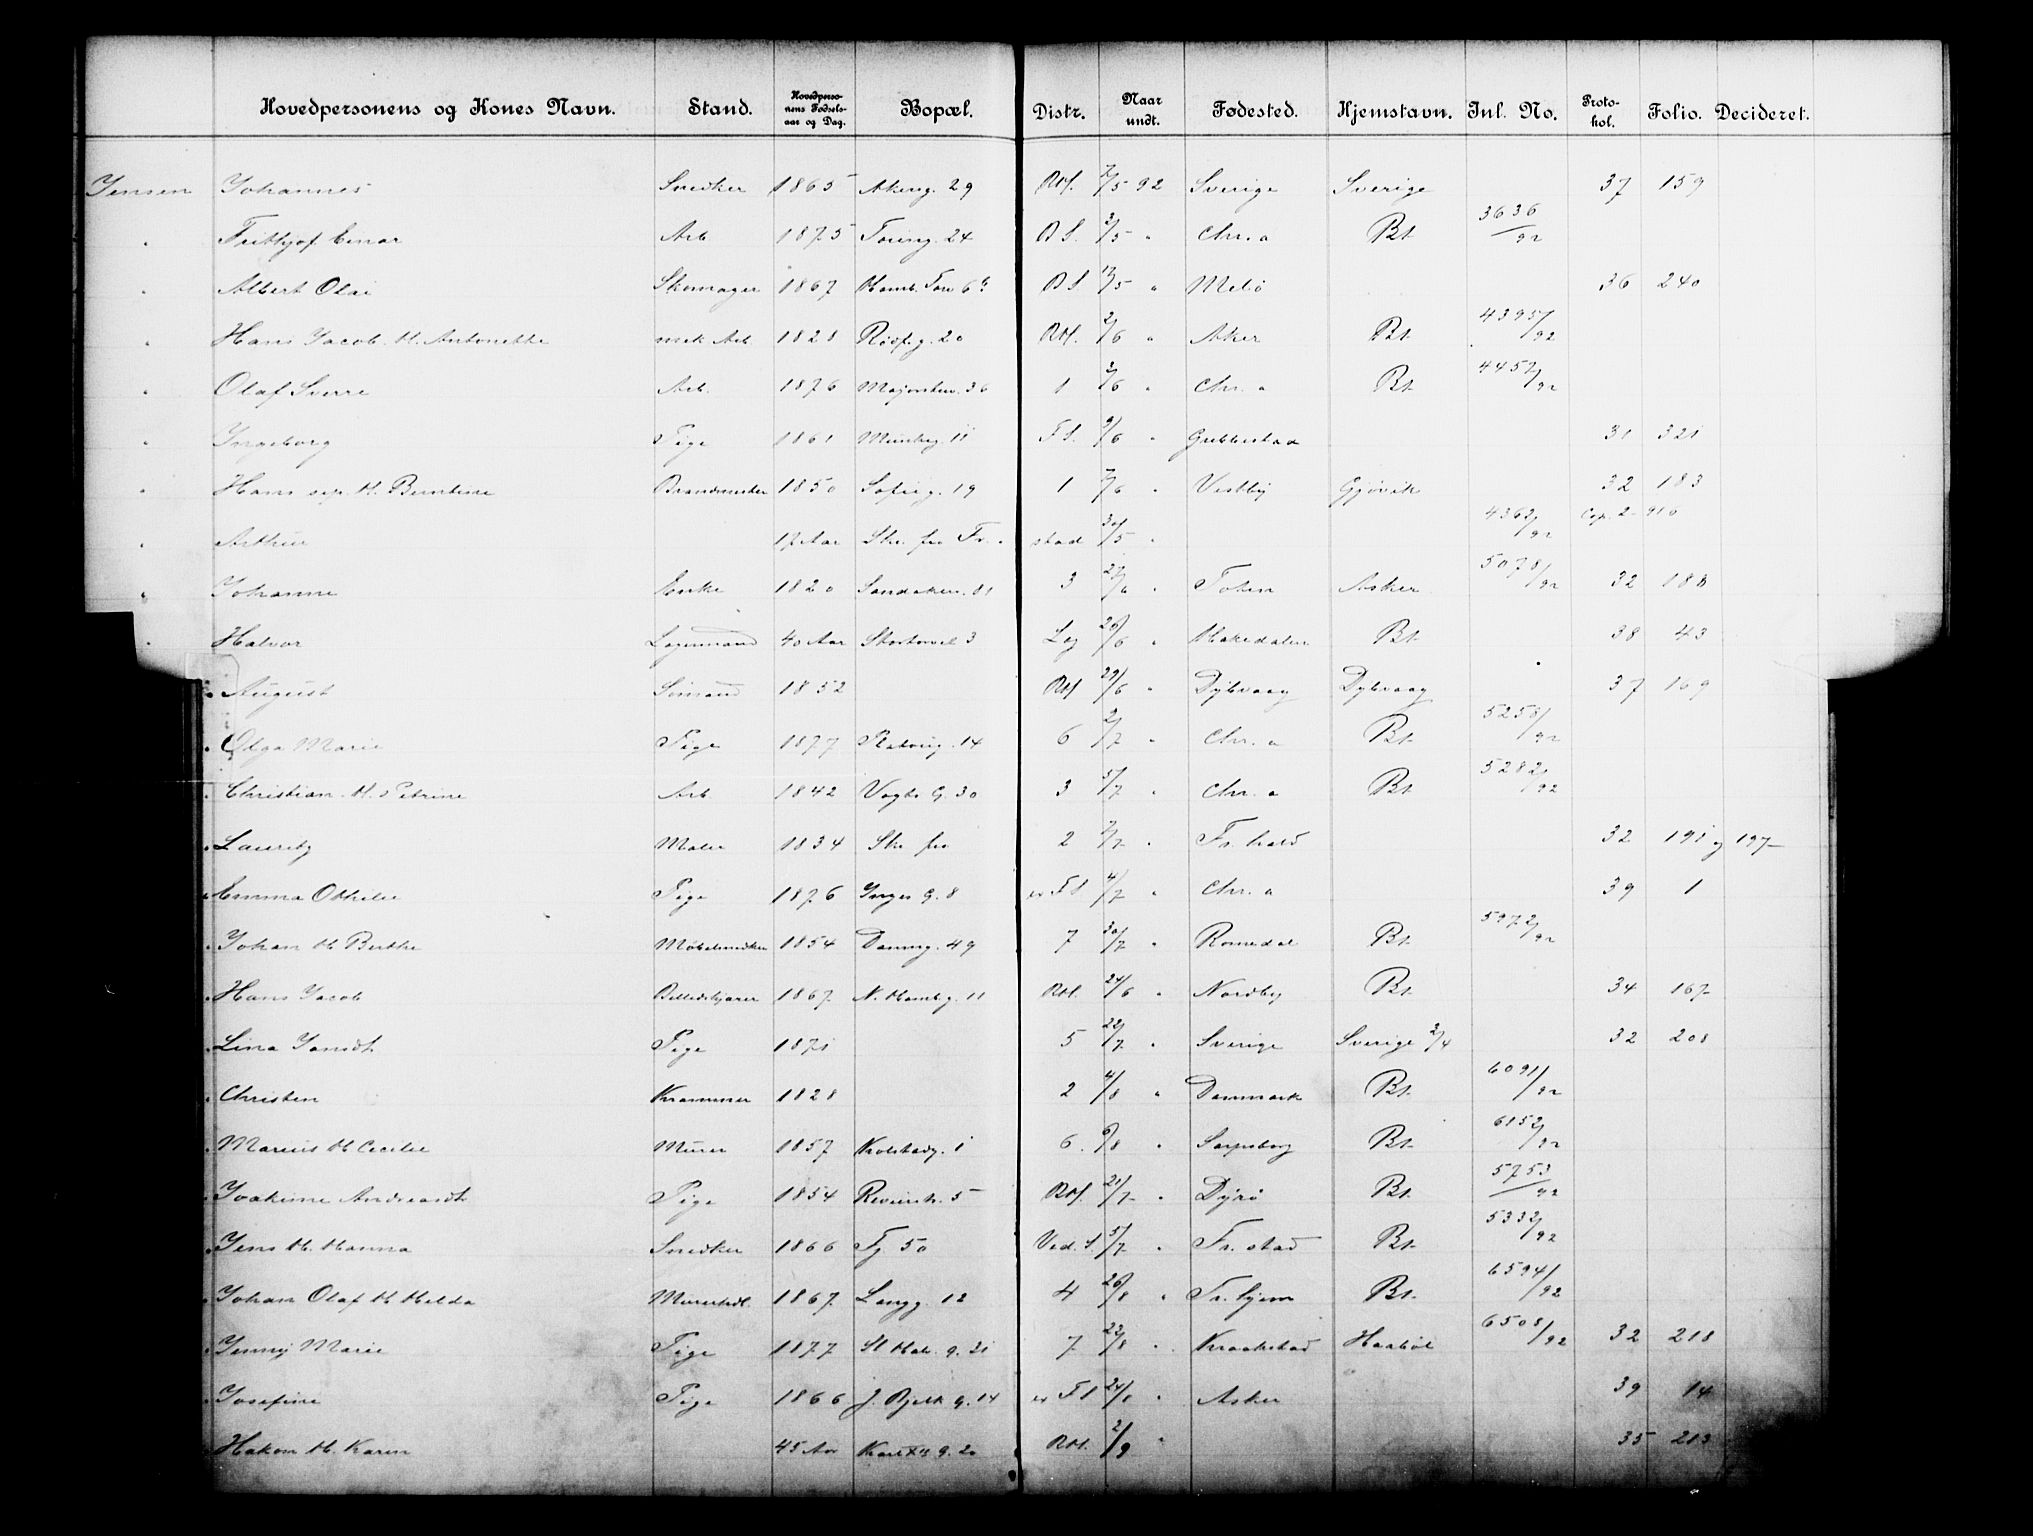 Hovedpersonens og Kones Navn. Stand. Hovedperso-nens Fødsels-aar og Dag. Bopæl. Distr. Naar undt. Fødested. Hjemstavn. Inl. No. Proto-kol. Folio. Decideret.
Jensen Johannes Snedker 1865 Akersg. 29 RM. 7/5 92 Sverige Sverige 37 159
" Frithjof Einar Arb 1875 Torvg. 24 B S. 3/5 " Chr.a Bt. 3636/92
" Albert Olai Skomager 1867 Hamb. Torv 6 B S 12/5 " Melø 36 240
" Hans Jacob. H. Antonette mek Arb. 1828 20 RM. 2/6 " Aker Bt. 4395/92
" Olaf Sverre Arb. 1876 Majorstuv. 36 1 2/6 " Chr.a Bt. 4457/92
" Ingeborg Pige 1861 Munkeg. 11 F S. 9/6 " Grebbestad 31 321
" Hans H. Berntine Brandmester 1850 Sofieg. 19 1 7/6 " Vestby Gjøvik 32 183
" Arthur 17 Aar Skr. fra Fr.stad 30/5 " 4362/92 Cop. 2-916
" Johanne Enke 1820 Sandakerv. 81 3 27/6 " Toten Asker 5078/92 32 188
" Halvor Logemand 40 Aar Stortorvet 3 Leg 26/6 " Hakedalen Bt. 38 43
" August Sømand 1852 RM 29/6 " Dybvaag Dybvaag 37 169
" Olga Marie Pige 1877 Ratvig. 14 6 2/7 " Chr.a Bt. 5258/92
" Christian. H. Petrine Arb 1842 Vogts G. 30 3 5/7 " Chr.a Bt. 5282/92
" Lauritz Maler 1834 Skr. fra 2 7/7 " Fr.hald 32 191 og 197
" Emma Othilie Pige 1876 Inges G. 8 F S 4/7 " Chr.a 39 1
" Johan H Berthe Møbelsnedker 1854 Dannig. 49 7 30/7 " Romedal Bt. 5972/92
" Hans Jacob Billedskjærer 1867 N. Hambg. 11 RM. 24/6 " Nordby Bt. 34 167
" Lina Jansdt. Pige 1871 5 22/7 " Sverige Sverige 2/4 32 208
" Christen Krammer 1828 2 4/8 " Danmark Bt. 6091/92
" Marius H Cecilie Murer 1857 Kolstadg. 1 6. 6/8 " Sarpsborg Bt. 6152/92
" Joakime Andreasdt. Pige 1854 Revierst. 5 RM. 21/7 " Dyrø Bt. 5753/92
" Jens H. Hanna Snedker 1866 Tg 50 Ved. S. 5/7 " Fr.stad Bt. 5332/92
" Johan Olaf H Hilda Murerhdl. 1867 Langg. 12 4 26/8 " Tr.hjem Bt. 6594/92
" Jenny Marie Pige 1877 St Hal. g. 21 7 22/8 " Kraakstad Haabøl 6508/92 32 218
" Josefine Pige 1866 J. Bjelk G. 14 F S 24/8 " Asker 39 14
" Hakon H. Karen 45 Aar Karl XII G. 20 RM. 2/9 " 35 213